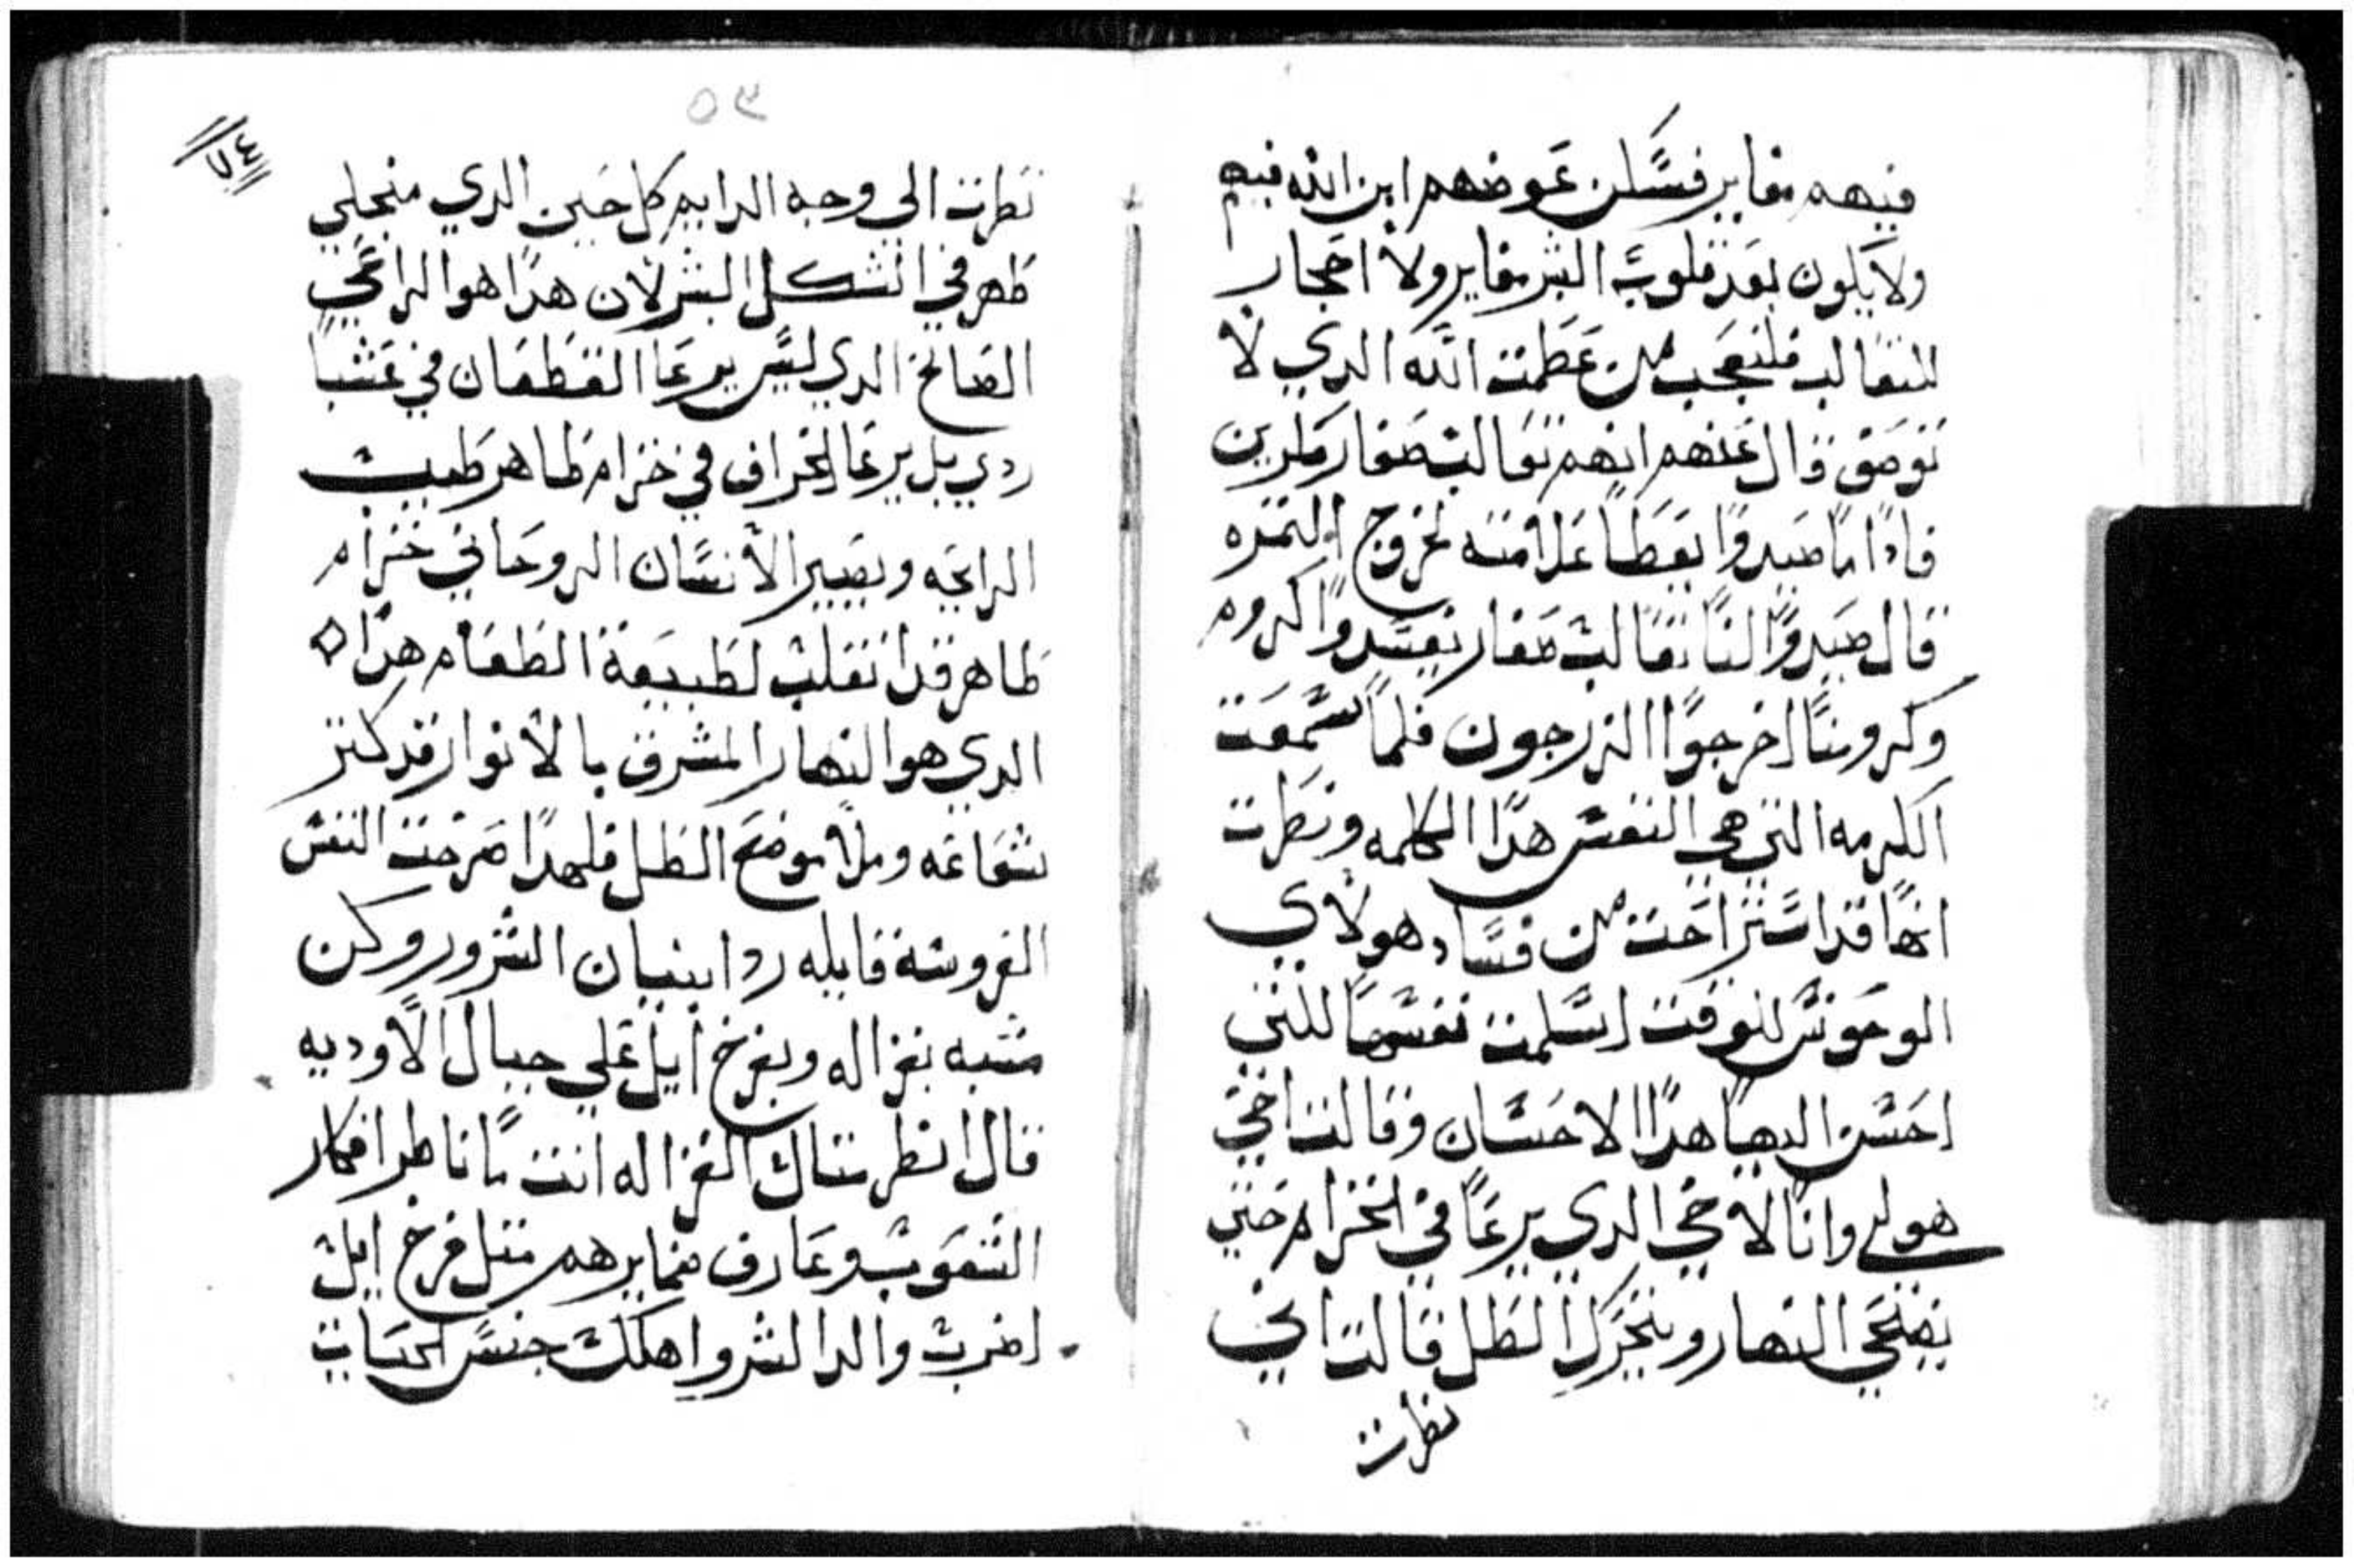 فيهم مغاير فسكن عوضهم ابن الله فيهم
ولا يكون بعد قلوب البشر مغاير ولا احجار
للتعالب فلنعجب من عظمت الله الدي لا
توصف قال عنهم انهم تعالب صغار ماردين
فادا ما صيدوا يعطا علامته لخروج التمره
قال صيدوا لنا تعالب صغار يفسدوا كرومـ
وكرومنا اخرجوا الزرجون فلما سمعت
الكرمه التي هي النفس هدا الكلمه ونظرت
انها قد استراحت من فساد هولاي
الوحوش للوقت اسلمت نفسها للذي
احسن اليها هدا الاحسان وقالت اخي
هو لي وانا لاخي الدي يرعا في الخزام حتي
يضحي النهار ويتحرك الظل قالت اني
نظرت
٥٣
٧٤
نظرت الي وجه الدايم كل حين الدي منجلي
ظهر في الشكل البشر لان هدا هو الراعي
الصالح الدي ليس يرعا القطعان في عشبا
ردي بل يرعا الخراف في خزام طاهر طيب
الرايحه ويصير الأنسان الروحاني خزام
طاهر قد انقلب لطبيعة الطعام هدا
الدي هو النهار المشرق بالأنوار قد كتر
شعاعه وملا موضع الظل فلهدا صرخت النفس
العروسة قايله رد ا بنيان الشرور وكن
متشبه بغزاله وبفرخ ايل علي جبال الأوديه
قال انظر متال الغزاله انت يا ناظر افكار
الشعوب وعارف ضمايرهم متل فرخ ايل
اضرب والد الشر واهلك جنس الحيات